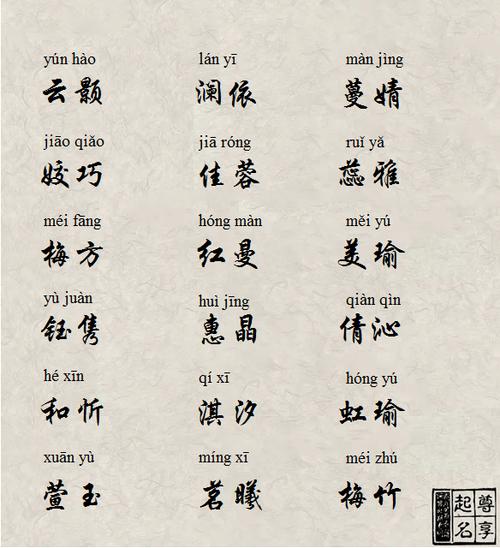 yún hào lán yī màn jìng
云颢 澜依 蔓婧
jiāo qiǎo jiā róng ruǐ yǎ
姣巧 佳蓉 蕊雅
méi fāng hóng màn měi yú
梅方 红曼 美瑜
yù juàn huì jīng qiàn qìn
钰隽 惠晶 倩沁
hé xīn qí xī hóng yú
和忻 淇汐 虹瑜
xuān yù míng xī méi zhú
萱玉 茗曦 梅竹
尊享
起名